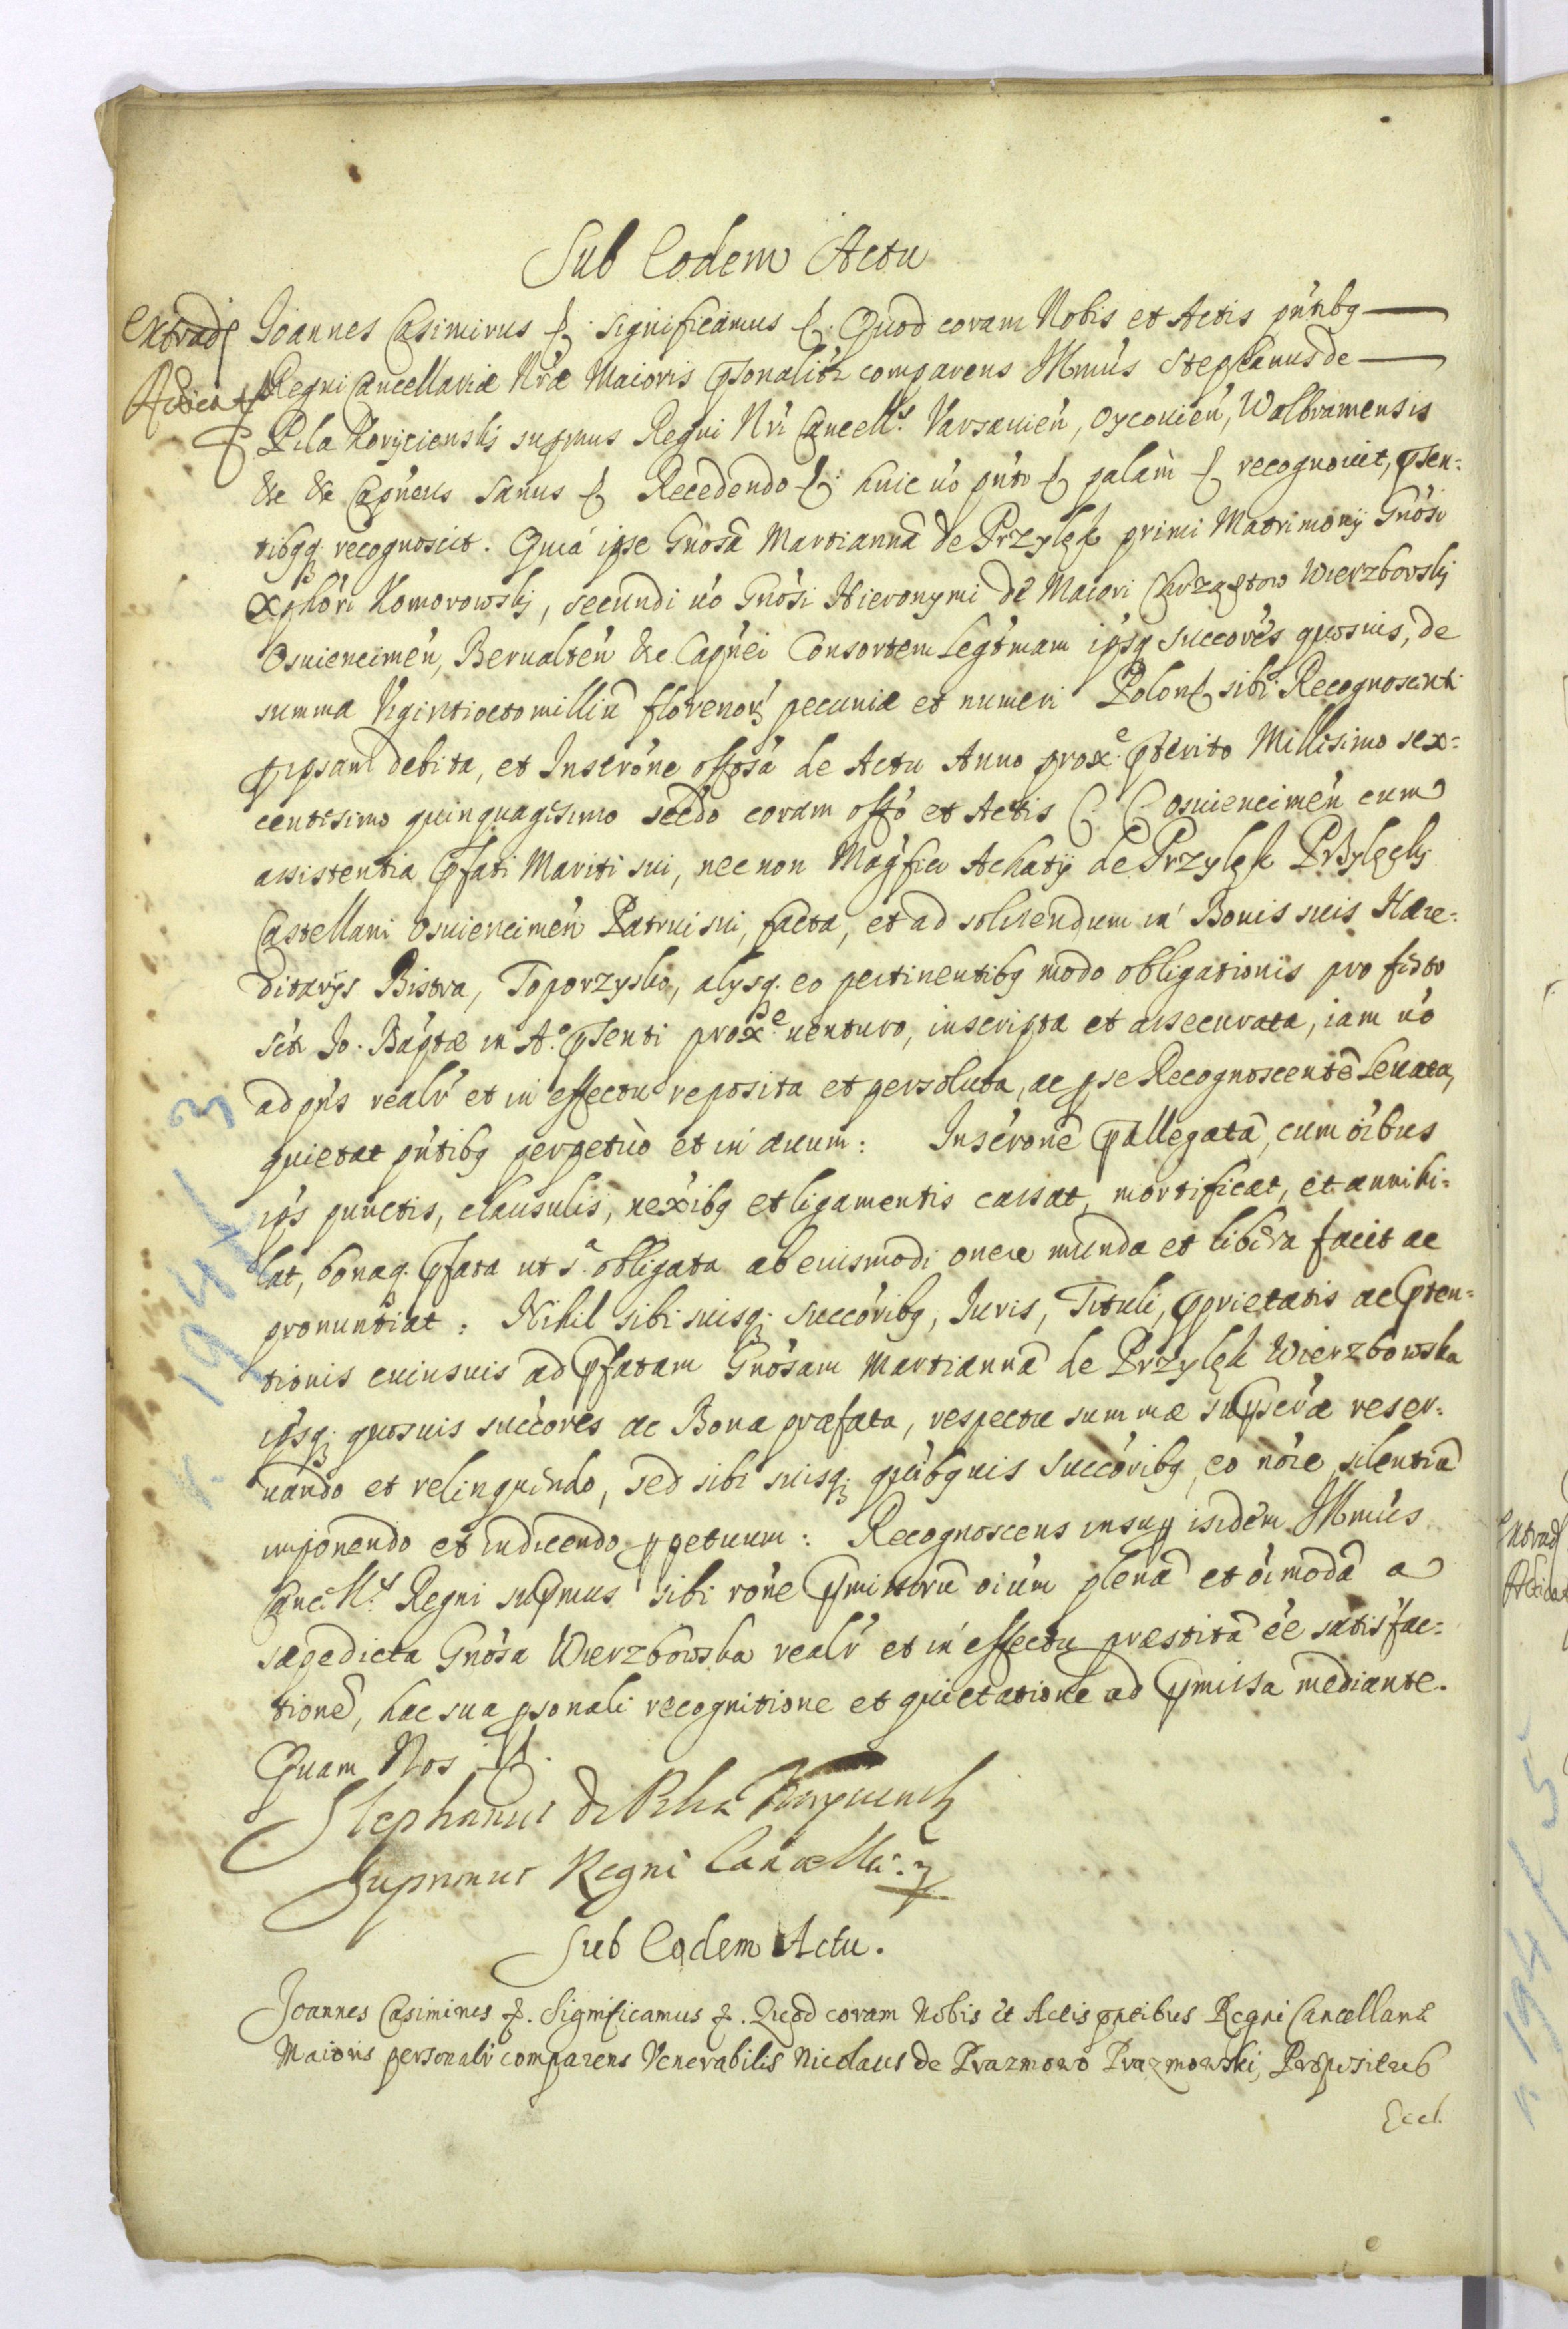 Sub Eodem Actu
Extrad
Joannes Casimirus &. significamus &. Quod coram Nobis et Actis pñtibq
Regni Cancellariæ Nræ Maioris psonalitr comparens Illmus Stephanus de
Pila Koryciensky supmus Regni Nri Cancells. Varsauień, Oycouień, Wolbramensis
&c &c Capńeus sanus & Recedendo &. huic uo pńti & palam & recognouit, psen=
tibqq recognoscit. Quia ipse Gnosã Martiannã de Przylęk primi Matrimonij Gnosi
Xphori Komorowsky, secundi uo Gnosi Hieronymi de Maiori Chrząstow Wierzbowsky
Osuiencimeń, Berualteń &c Capńei Consortem Legtmam ipsq succores quosuis, de
summa Vigintiocto millium florenor pecuniæ et numeri Polon& sibi Recognoscenti
p ipsam debita, et Inscrone offosa de Actu Anno proxe. pterito Millesimo sex=
centesimo quinquagesimo secdo coram offo et Actis C C Osuiencimeń cum
assistentia pfati Mariti sui, nec non Magfici Achatij de Przylęk Przylęcky
Castellani Osuiencimeń Patrui sui, facta, et ad soluendum in Bonis suis Hære=
ditarijs Bistra, Toporzysko, alysq. eo pertinentibq modo obligationis pro festo
sti Jo. Baptæ in Ao. psenti proxe. uenturo, inscripta et assecurata, iam uo
ad pńs realr et in effectu reposita et persoluta, ac p se Recognoscentẽ Leuata,
quietat pńtibq perpetuò et in æuum: Inscronẽ pallegatã, cum oibus
ips punctis, clausulis, nexibq et ligamentis cassat, mortificat, et annihi=
lat, bonaq. pfata ut sa. obligata ab eiusmodi onere munda et libera facit ac
pronuntiat: Nihil sibi suisq. succoribq, Iuris, Tituli, pprietatis ac pten=
tionis cuiusuis ad pfatam Gnosam Martiannã de Przylęk Wierzbowska
ipsq. quosuis succores ac Bona præfata, respectu summæ supscræ reser=
uando et relinquendo, sed sibi suisq. quibquis succoribq, eo noie silentiũ
imponendo et indicendo ppetuum: Recognoscens insup isidem Illmus
Cancells. Regni supmus sibi rone pmissorũ oium plenã et oimodã a
sæpedicta Gnosa Wierzbowska realr et in effectu præstitã ẽe satisfac=
tionẽ, hac sua psonali recognitione et quietatione ad pmissa mediante.
Quam Nos &.
Stephanus de Pilcza Koryciensky
Supremus Regni Cancella:
Sub Eodem Actu.
Joannes Casimirus &. Significamus &. Quod coram Nobis et Actis pntibus Regni Cancellariæ
Maioris personalr comparens Venerabilis Nicolaus de Prazmowo Prazmowski, Præpositus
Eccl.